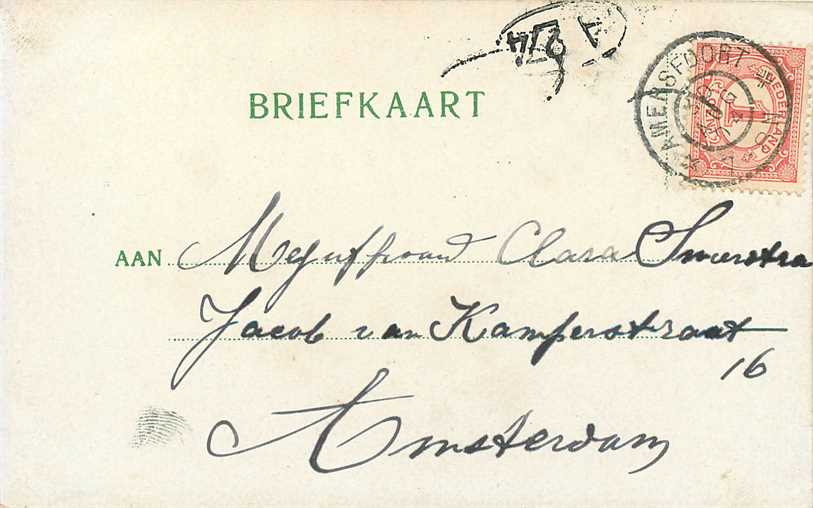 BRIEFKAART
AMERSFOORT
NEDERLAND
1
CENT
AAN Mejuffrouw Clara
Jacob van Kamperstraat
16
Amsterdam